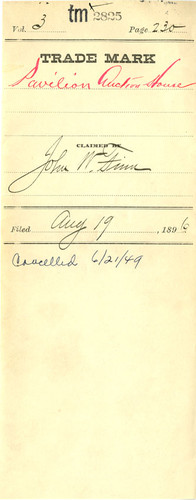 tm 2825
Vol. 3 Page 230
TRADE MARK
Pavilion Auction House
CLAIMED BY
John W. Finn
Filed Aug 19, 1896
Cancelled 6/21/49